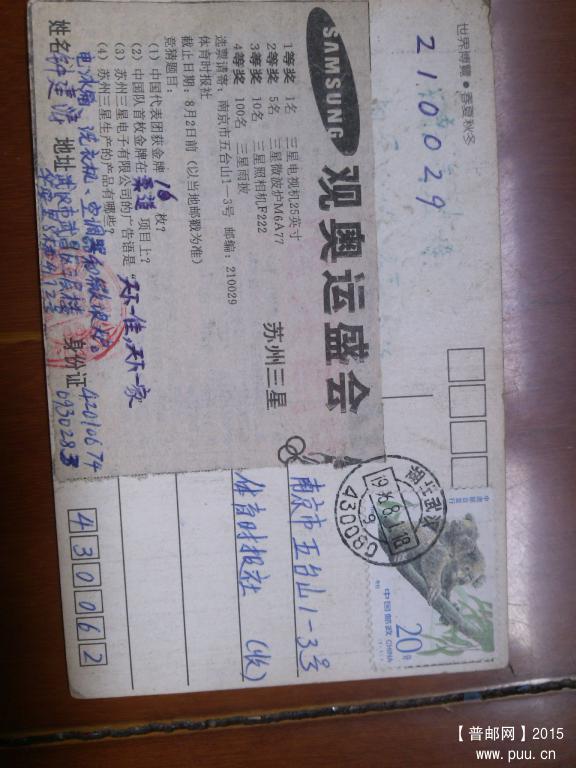 世界博览•春夏秋冬
210029
SAMSUNG
观奥运盛会
苏州三星
1等奖 1名 三星电视机25英寸
2等奖 5名 三星微波炉M6A77
3等奖 10名 三星照相机F222
4等奖 100名 三星雨披
选票请寄：南京市五台山1－3号 邮编：210029
体育时报社
截止日期：8月2日前（以当地邮戳为准）
竞猜题目：
(1) 中国代表团获金牌 16 枚？
(2) 中国队首枚金牌在 柔道 项目上？
(3) 苏州三星电子有限公司的广告语是“天下一佳，天下一家
(4) 苏州三星生产的产品有哪些？
电冰箱、洗衣机、空调器和微波炉。
姓名 地址 身份证
南京市五台山1－3号
体育时报社 （收）
430062
430080
中国邮政 CHINA
20分
【普邮网】2015
www.puu.cn